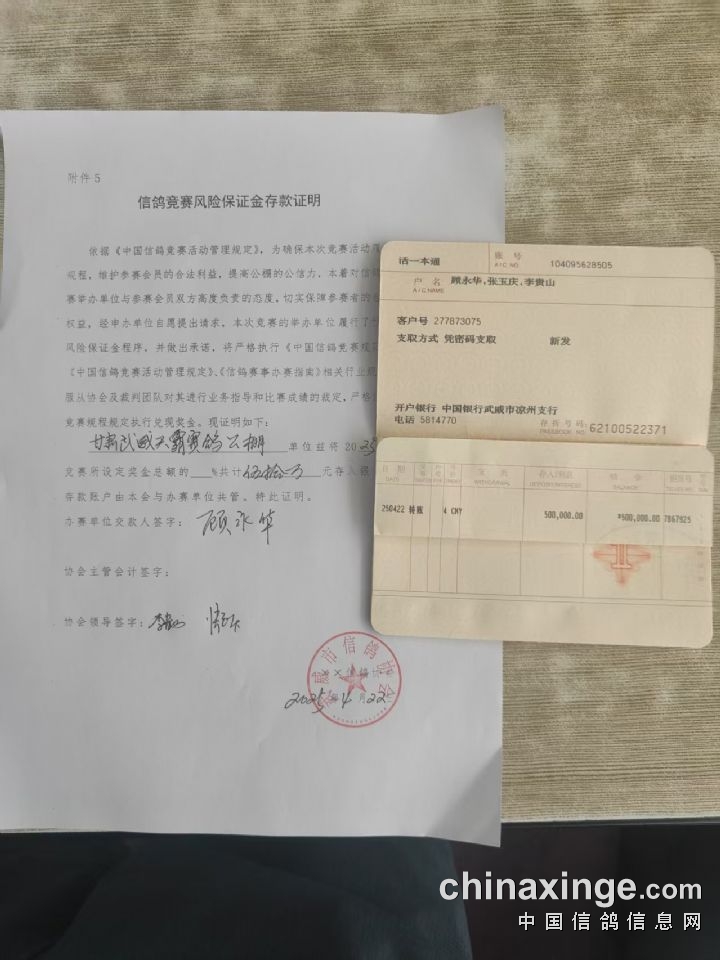 附件5
信鸽竞赛风险保证金存款证明
依据《中国信鸽竞赛活动管理规定》,为确保本次竞赛活动
规程,维护参赛会员的合法利益,提高公棚的公信力,本着对信鸽
赛举办单位与参赛会员双方高度负责的态度,切实保障参赛者的
权益,经申办单位自愿提出请求,本次竞赛的举办单位履行了
风险保证金程序,并做出承诺,将严格执行《中国信鸽竞赛规
《中国信鸽竞赛活动管理规定》、《信鸽赛事办赛指南》相关行业规
服从协会及裁判团队对其进行业务指导和比赛成绩的裁定,严格
竞赛规程规定执行兑现奖金。现证明如下:
甘肃武威天霸赛鸽公棚单位兹将2025
竞赛所设定奖金总额的 %共计伍拾万元存入银
存款账户由本会与办赛单位共管。特此证明。
办赛单位交款人签字:顾永华
协会主管会计签字:
协会领导签字:
威市信鸽协会
2025年4月22日
活一本通
账号
A/C NO. 104095628505
户名 顾永华,张玉庆,李贵山
A/C NAME
客户号 277873075
支取方式 凭密码支取 新发
开户银行 中国银行武威市凉州支行
电话 5814770
存折号码:
PASSBOOK NO. 62100522371
日期
DATE
支出
WITHDRAWAL
存入/利息
DEPOSIT/INTEREST
结余
BALANCE
250422 转账 4 CNY 500,000.00 *500,000.00 7867925
chinaxinge.com
中国信鸽信息网